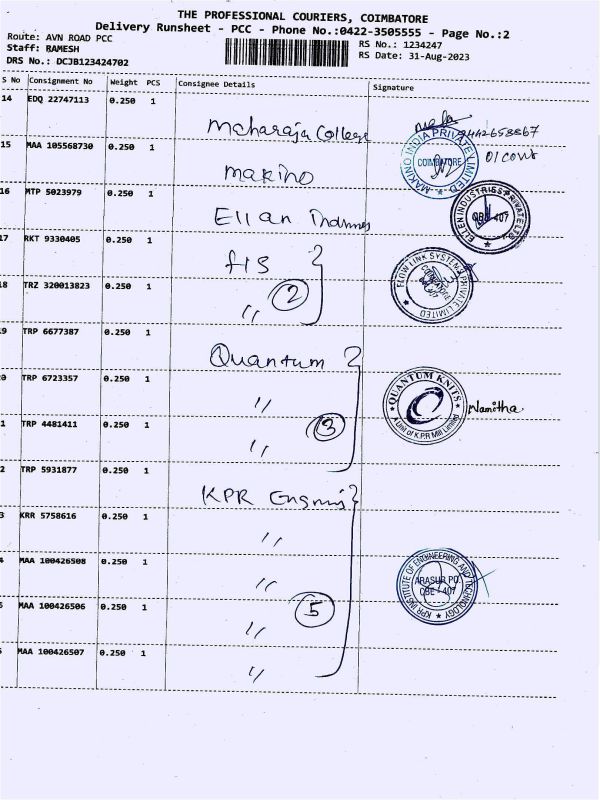 THE PROFESSIONAL COURIERS, COIMBATORE
Delivery Runsheet - PCC - Phone No.:0422-3505555 - Page No.:2
Route: AVN ROAD PCC
RS No.: 1234247
Staff: RAMESH
RS Date: 31-Aug-2023
DRS No.: DCJB123424702
S No Consignment No Weight PCS Consignee Details Signature
14 EDQ 22747113 0.250 1
Maharaja College
15 MAA 105568730 0.250 1
Makino
MAKINO INDIA PRIVATE LIMITED
COIMBATORE
16 MTP 5023979 0.250 1
Ellan
ELLEN INDUSTRIES PRIVATE LTD
CBE 407
17 RKT 9330405 0.250 1
FLOW LINK SYSTEMS PRIVATE LIMITED
18 TRZ 320013823 0.250 1
" 2
9 TRP 6677387 0.250 1
Quantum
0 TRP 6723357 0.250 1
"
QUANTUM KNITS
A Unit of K.P.R Mill Limited
Namitha
1 TRP 4481411 0.250 1
" 3
2 TRP 5931877 0.250 1
KPR
3 KRR 5758616 0.250 1
"
4 MAA 100426508 0.250 1
"
KPR INSTITUTE OF ENGINEERING AND TECHNOLOGY
ARASUR PO.
CBE - 407
MAA 100426506 0.250 1
" 5
MAA 100426507 0.250 1
"